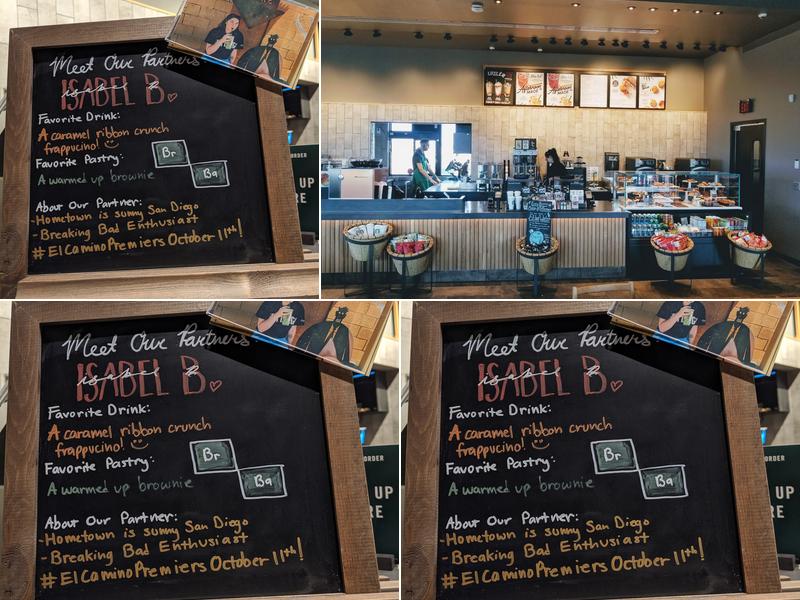 Meet Our Partners
ISABEL B.
isabel B
Favorite Drink:
A caramel ribbon crunch
frappucino!
Favorite Pastry:
A warmed up brownie
Br
Ba
About Our Partner:
-Hometown is sunny San Diego
-Breaking Bad Enthusiast
#ElCaminoPremiers October 11th!
ORDER
UP
RE
Meet Our Partners
ISABEL B.
isabel B
Favorite Drink:
A caramel ribbon crunch
frappucino!
Favorite Pastry:
A warmed up brownie
Br
Ba
About Our Partner:
-Hometown is sunny San Diego
-Breaking Bad Enthusiast
#ElCaminoPremiers October 11th!
Meet Our Partners
ISABEL B.
isabel B
Favorite Drink:
A caramel ribbon crunch
frappucino!
Favorite Pastry:
A warmed up brownie
Br
Ba
About Our Partner:
-Hometown is sunny San Diego
-Breaking Bad Enthusiast
#ElCaminoPremiers October 11th!
ORDER
UP
RE